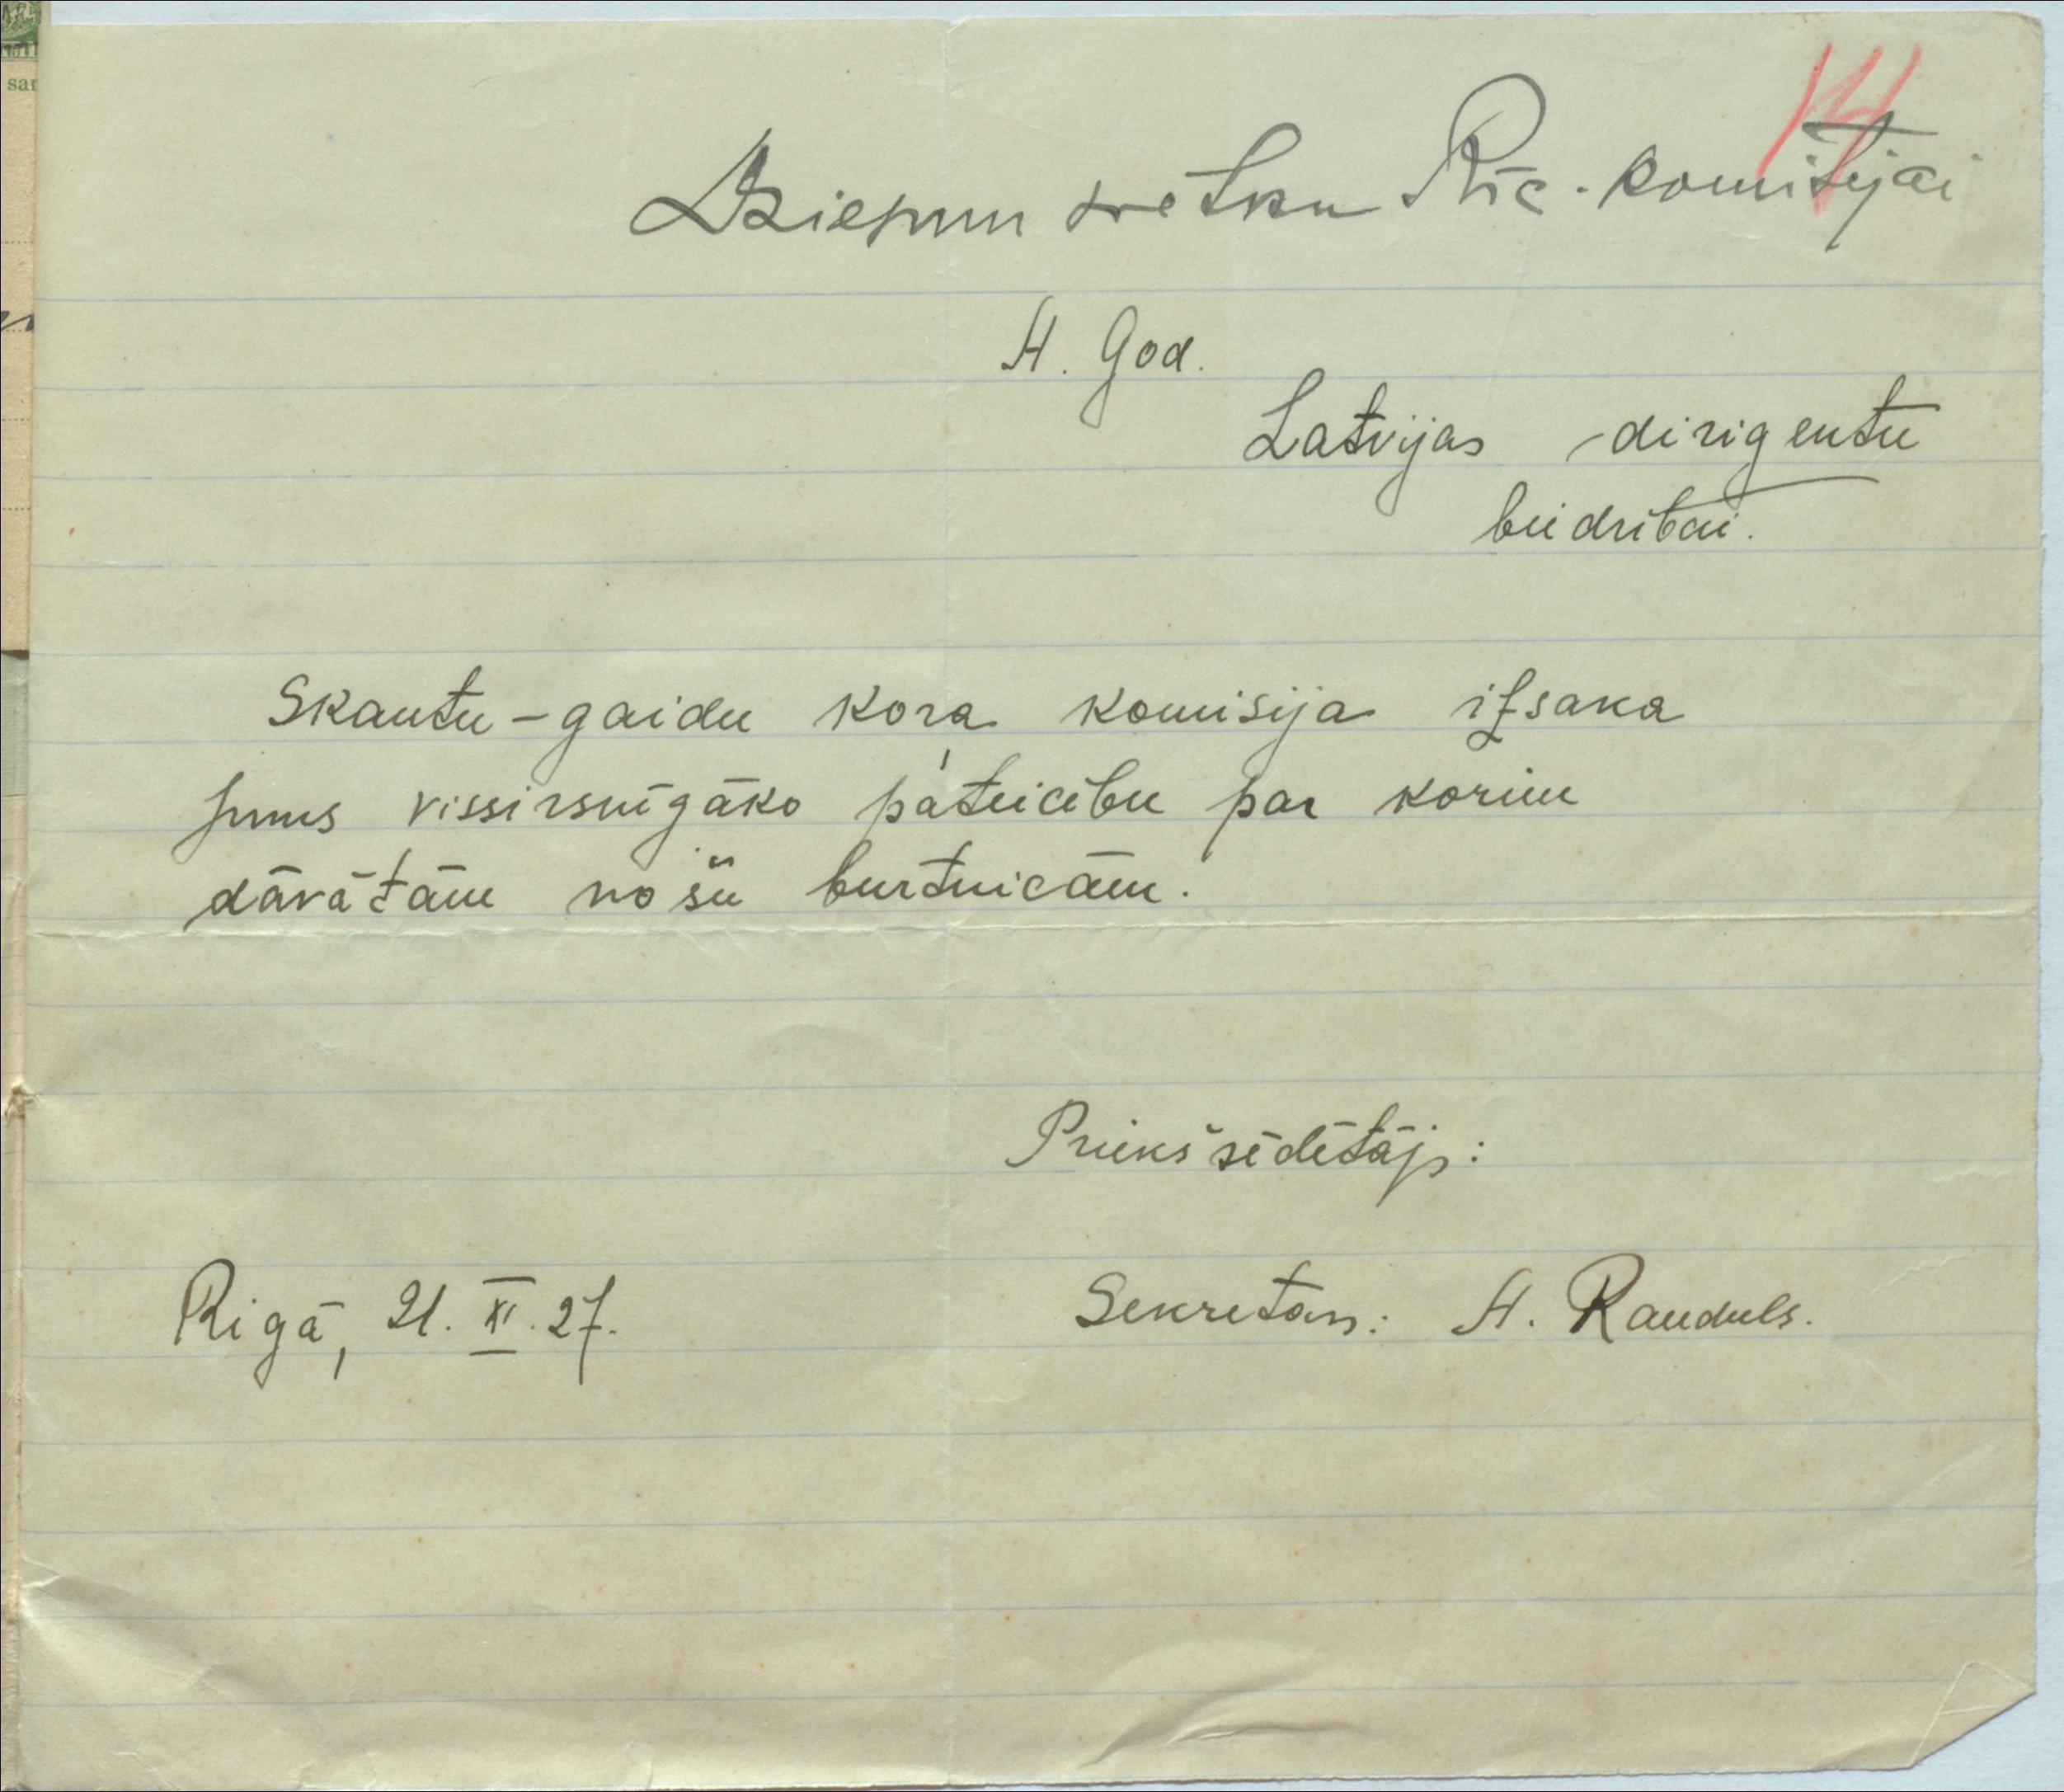 14
Dziesmu svētku Rīc. komitejai
A. God.
Latvijas dirigentu
biedrībai.
Skautu-gaidu kora komisija izsaka
jums vissirsnīgāko pateicību par korim
dāvātām nošu burtnicām.
Priekšsēdētājs:
Rīgā, 21. XI. 27.
Sekretārs: A. Rauduls.